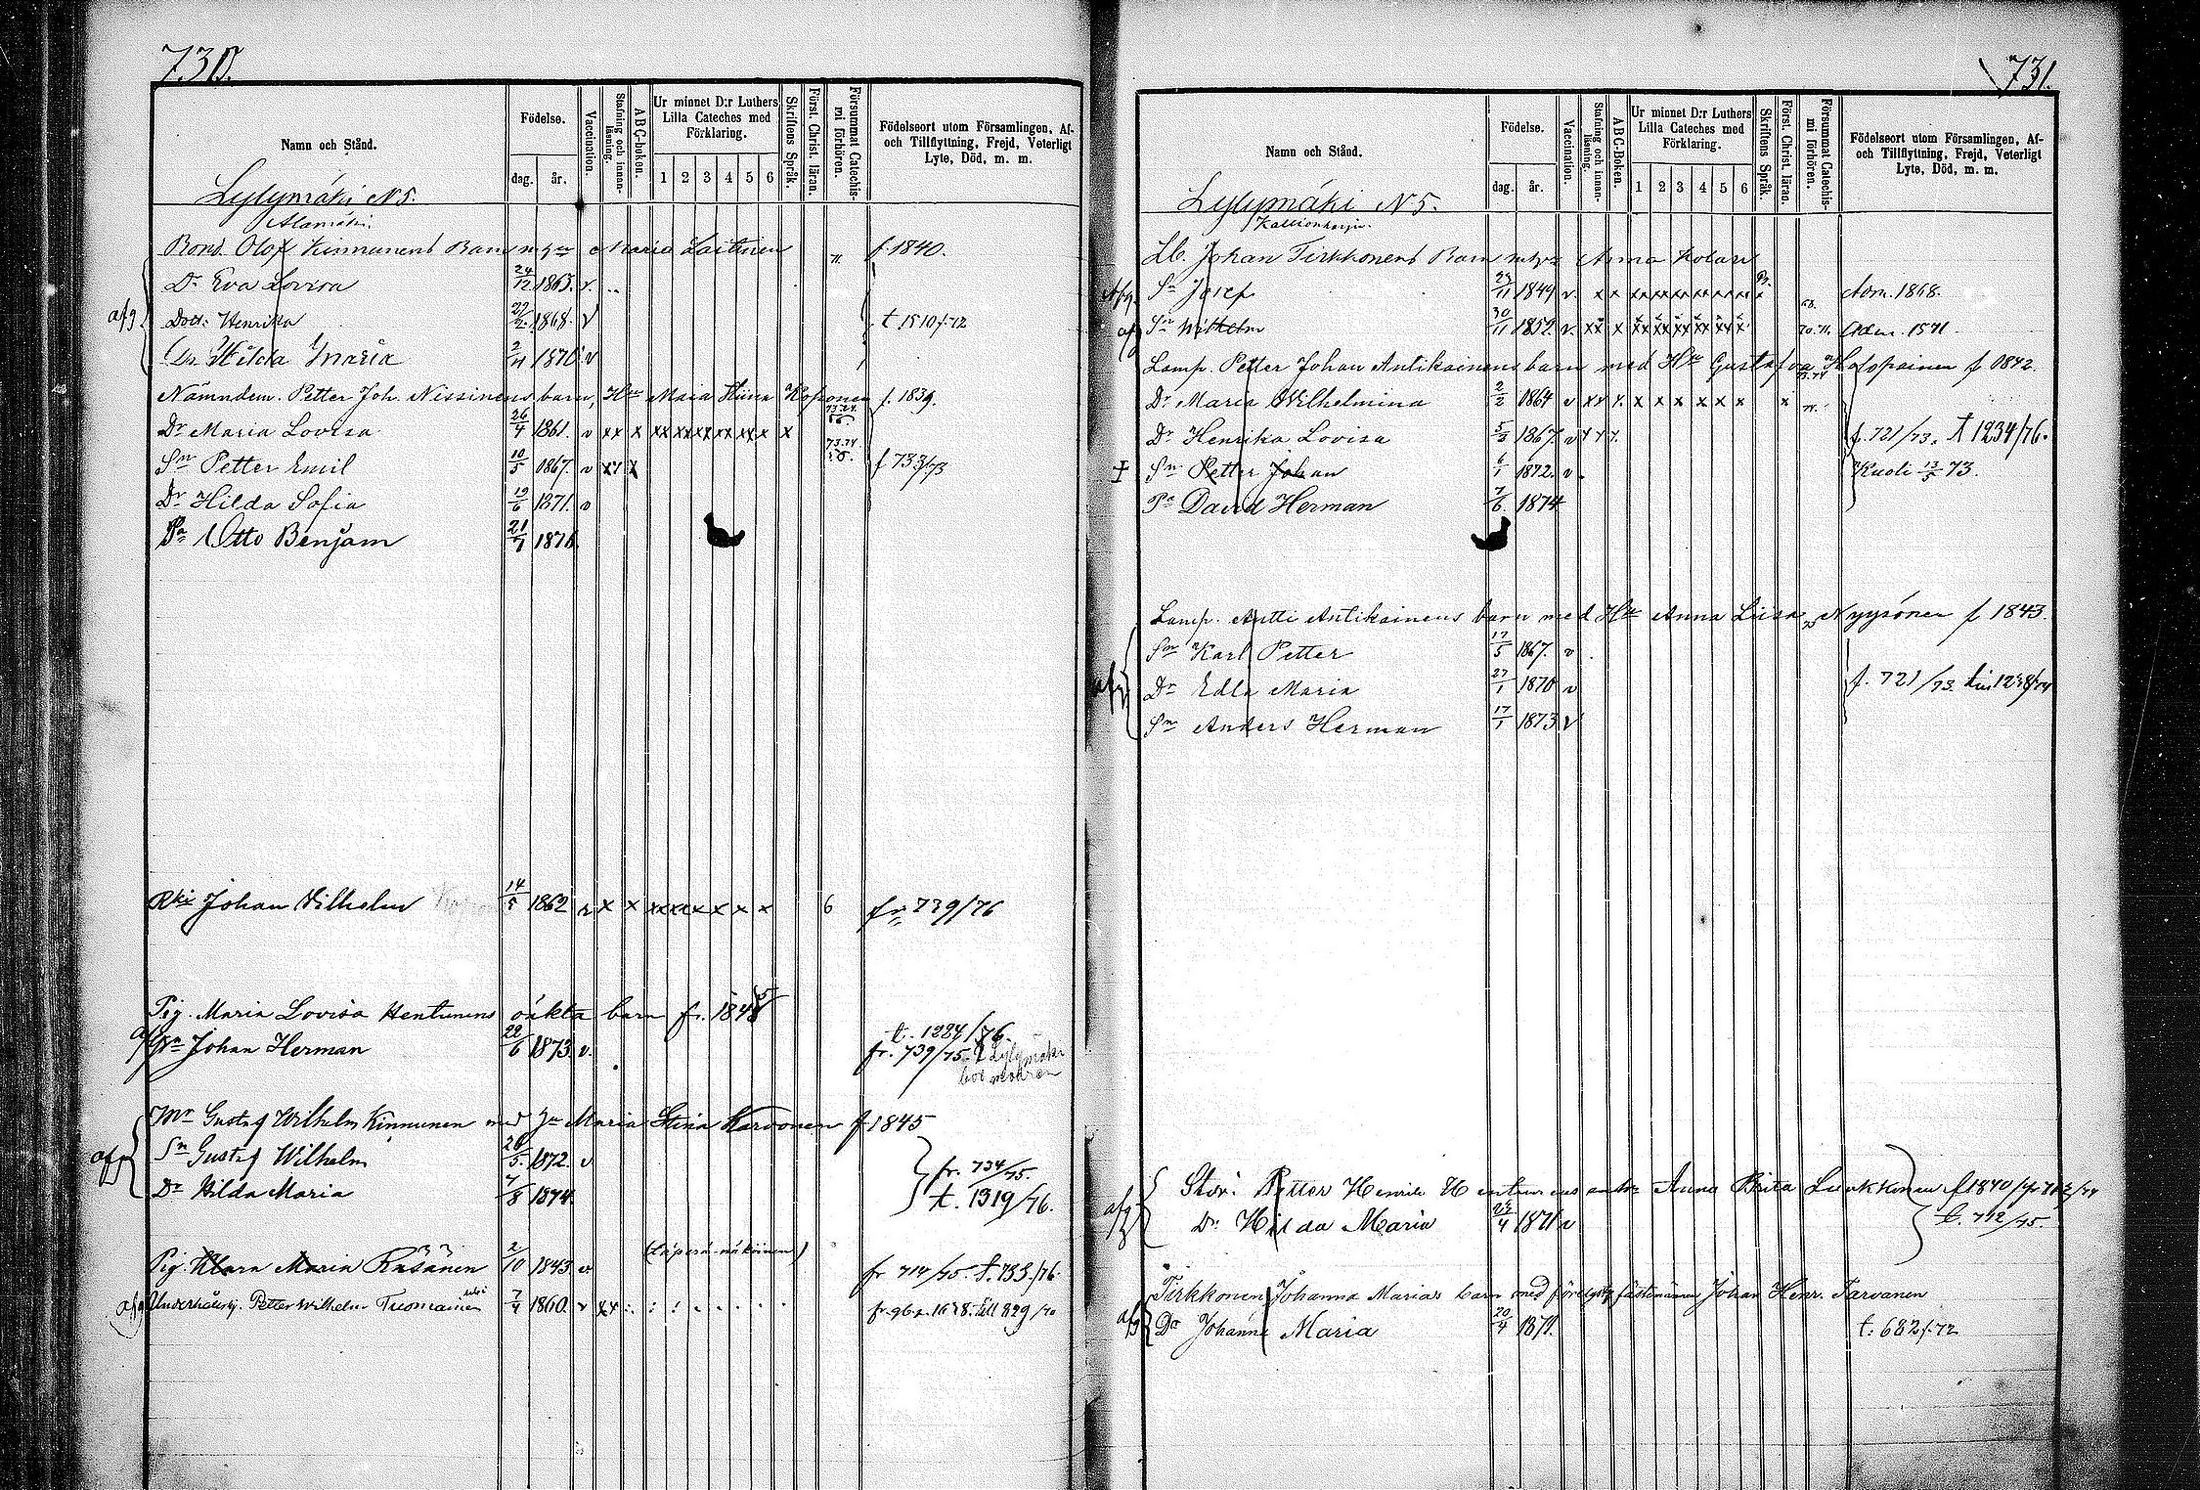 730.
Namn och Stånd.
Födelse.
dag. år.
Vaccination.
Stafning och innanläsning.
ABC-boken.
Ur minnet D:r Luthers Lilla Cateches med Förklaring.
1 2 3 4 5 6
Skriftens Språk.
Först. Christ. läran.
Försummat Catechismi förhören.
Födelseort utom Församlingen, Af- och Tillflyttning, Frejd, Veterligt Lyte, Död, m. m.
Lylymäki N 5.
Alamäki.
Bond. Olof Kinnunens Barn m. hu Maria Laitinen f. 1840.
Dr Eva Lovisa 24/12 1865. v.
afg Dott: Henrika 22/2 1868. v t 1510 f. 72
Dr Hilda Maria 2/4 1870 v
Nämndem. Petter Joh. Nissinens barn, Hu Maria Stiina Koponen f. 1839.
Dr Maria Lovisa 26/4 1861. v xx x xx xx xx xx xx x x
Sn Petter Emil 10/5 1867. v f 733/73
Dr Hilda Sofia 19/6 1871. v
Sn Otto Benjam 21/7 1875
Johan Vilhelm 14/5 1862 x x 6 fr. 739/76
Pig. Maria Lovisa Hentunens oäkta barn
t. 1224/76.
Sn Johan Herman 22/6 1873 v. fr. 739/75
Gustaf Wilhelm Kinnunen med hu Maria Stina Karvonen f 1845
afg Sn Gustaf Wilhelm 1872. v fr. 734/75.
Dr Hilda Maria 7/8 1874 t. 1319/76.
Pig. Klara Maria Räsänen 2/10 1843 v fr 714/75. t. 733/76.
afg Petter Wilhelm Tuomainen 7/4 1860. v
731.
Namn och Stånd.
Födelse.
dag. år.
Vaccination.
Stafning och innanläsning.
ABC-Boken.
Ur minnet D:r Luthers Lilla Cateches med Förklaring.
1 2 3 4 5 6
Skriftens Språk.
Först. Christ. läran.
Försummat Catechismi förhören.
Födelseort utom Församlingen, Af- och Tillflyttning, Frejd, Veterligt Lyte, Död, m. m.
Lylymäki N 5.
Lb. Johan Tirkkonens Barn m. hu Anna Kolari
Afg. Sn Josef 1849 v. x x Adm. 1868.
af Sn Wilhelm 30/11 1852. v. Adm. 1871.
Lamp. Petter Johan Antikainens barn med Hu Gustafva Holopainen f 1842.
Dr Maria Wilhelmina 2/2 1864 v xx x. x x x x x x x
Dr Henrika Lovisa 5/2 1867. v f. 721/73. t 1234/76.
‡ Sn Petter Johan 6/1 1872. v. Kuoli 13/5 73.
Pa David Herman 7/6 1874
Lamp. Antti Antikainens barn med Hu Anna Liisa Nyysönen f 1843.
Sn Karl Petter 17/5 1867. v
afg Dr Edla Maria 27/1 1870 v f. 721/73.
Sn Anders Herman 17/1 1873 v
Petter Henrik Hentunens Anna Brita Luukkonen f 1840
afg Dr Hilda Maria 1871 v
Tirkkonen Johanna Marias barn med fästeman Johan Henr. Tarvanen
afg Dr Johanna Maria 20/4 1871. t. 682 f. 72